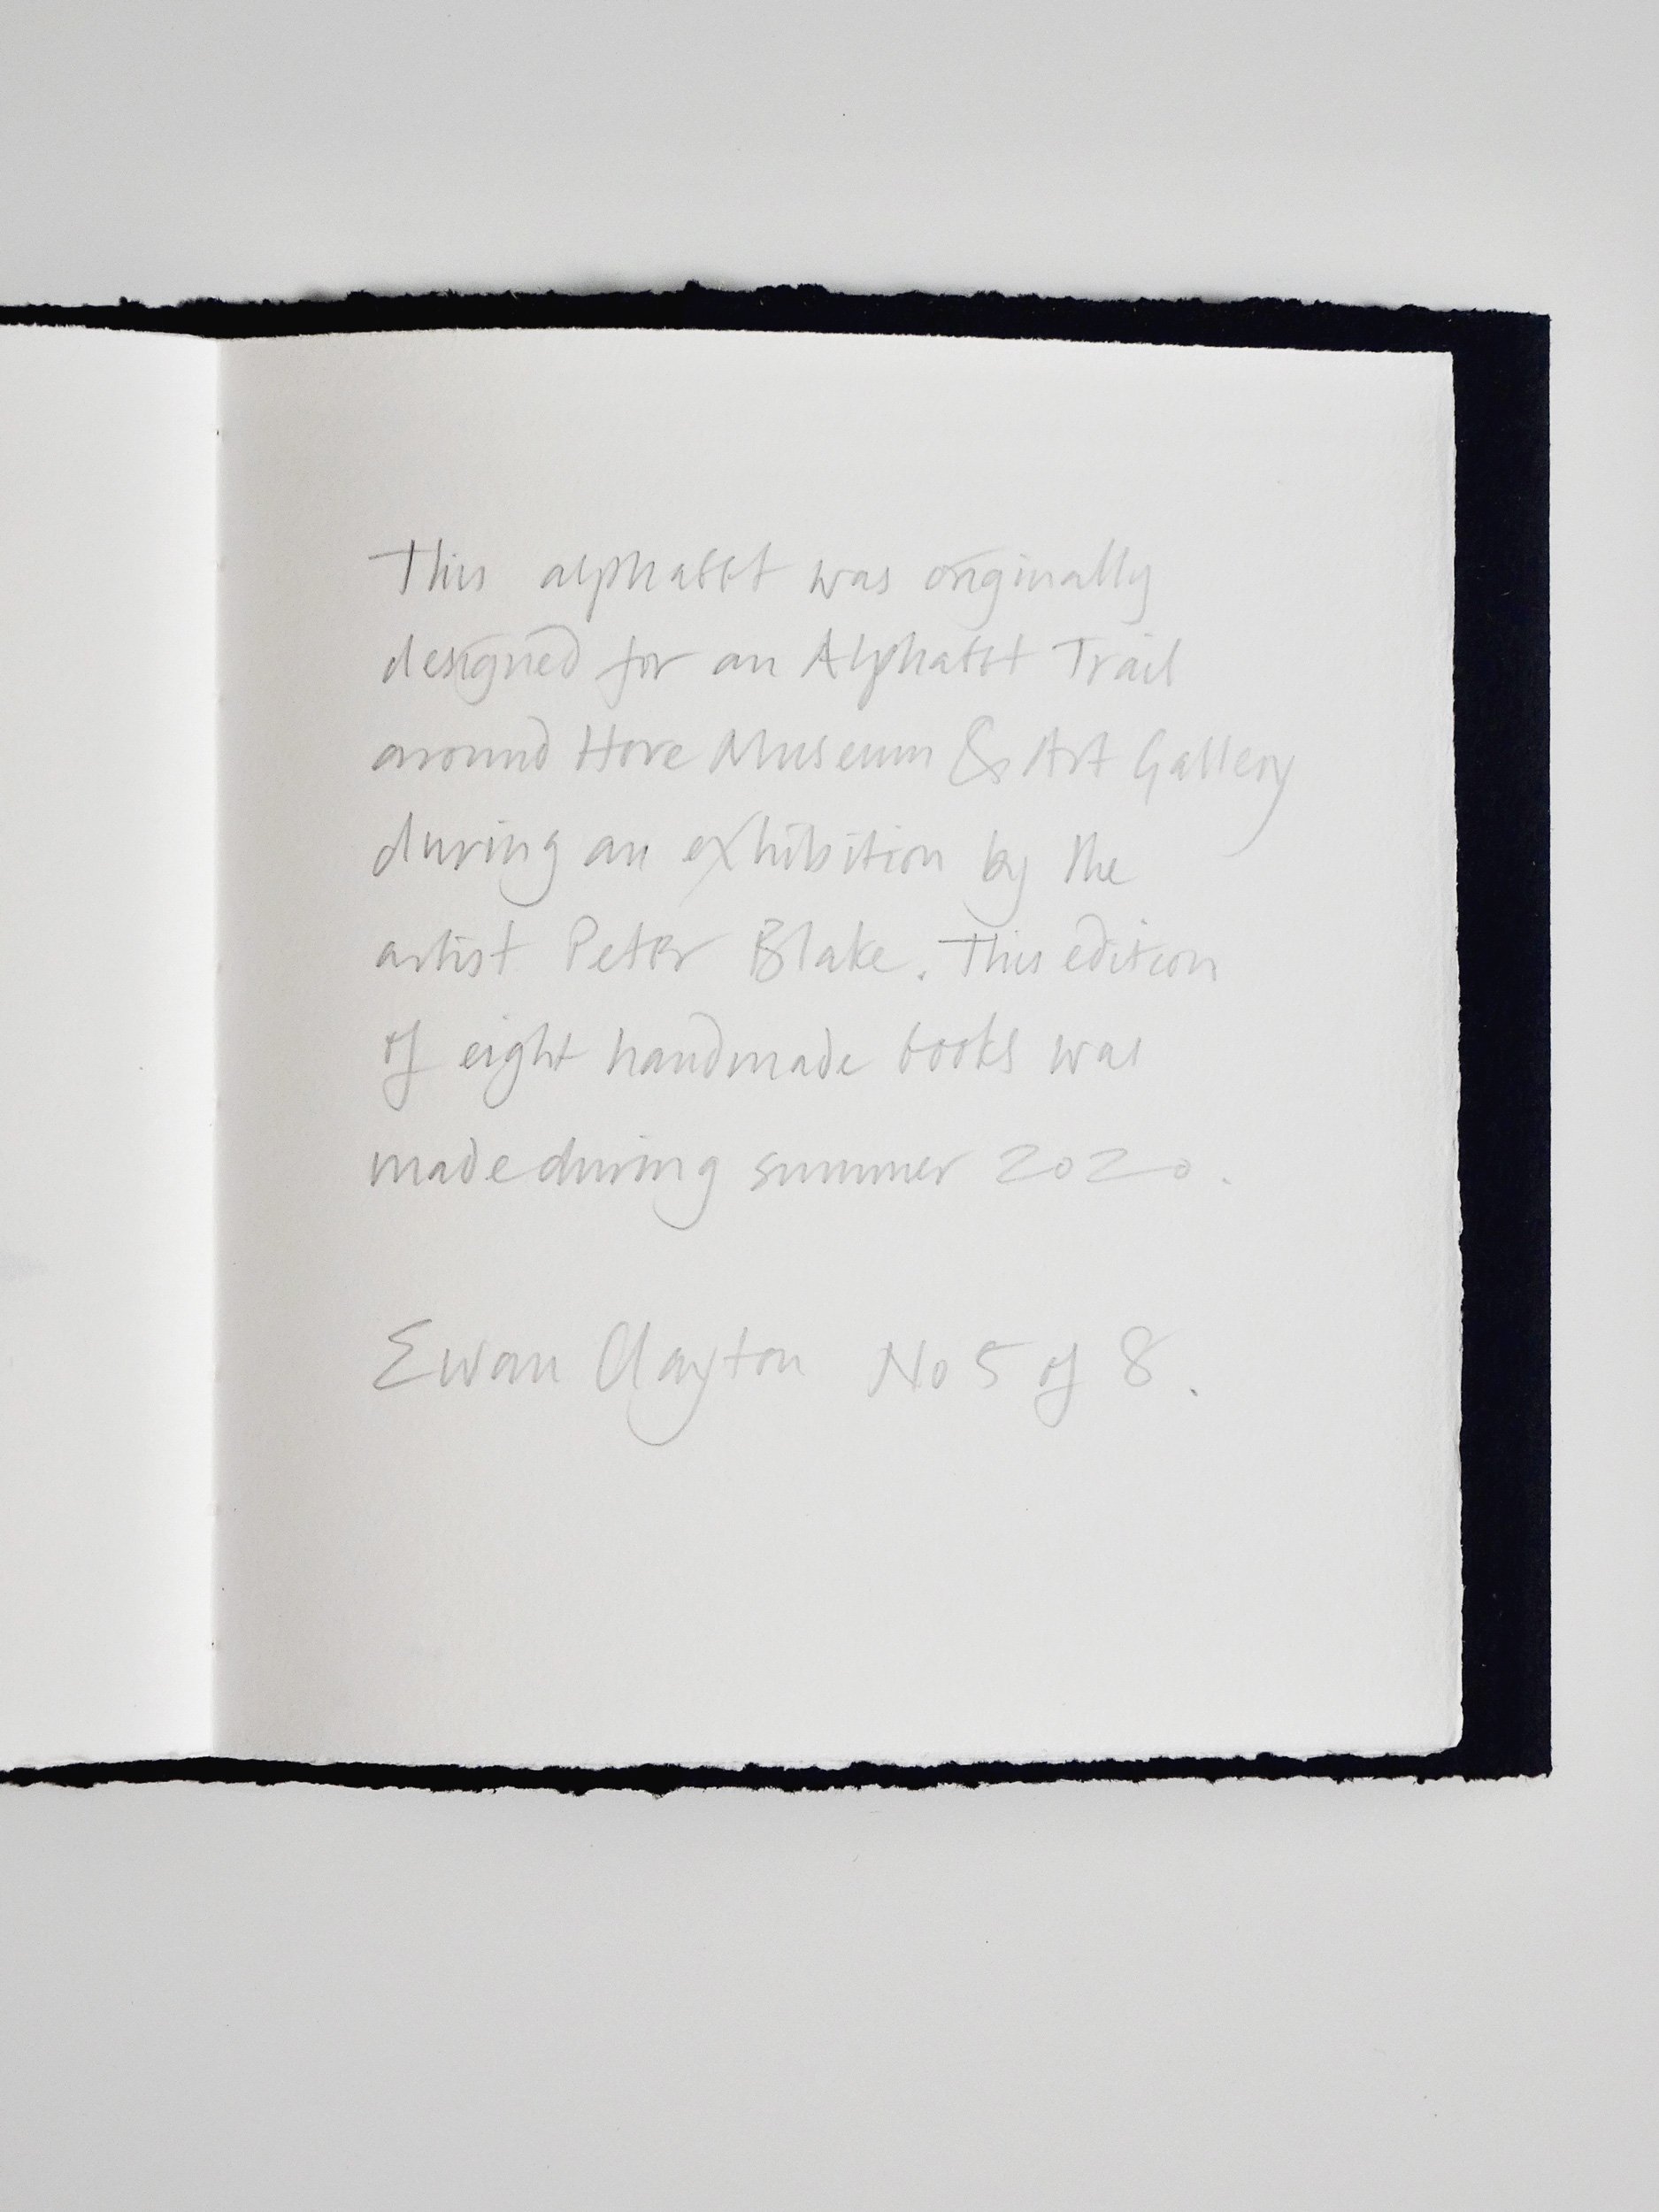 This alphabet was originally
designed for an Alphabet Trail
around Hove Museum & Art Gallery
during an exhibition by the
artist Peter Blake. This edition
of eight handmade books was
made during summer 2020.
Ewan Clayton No 5 of 8.